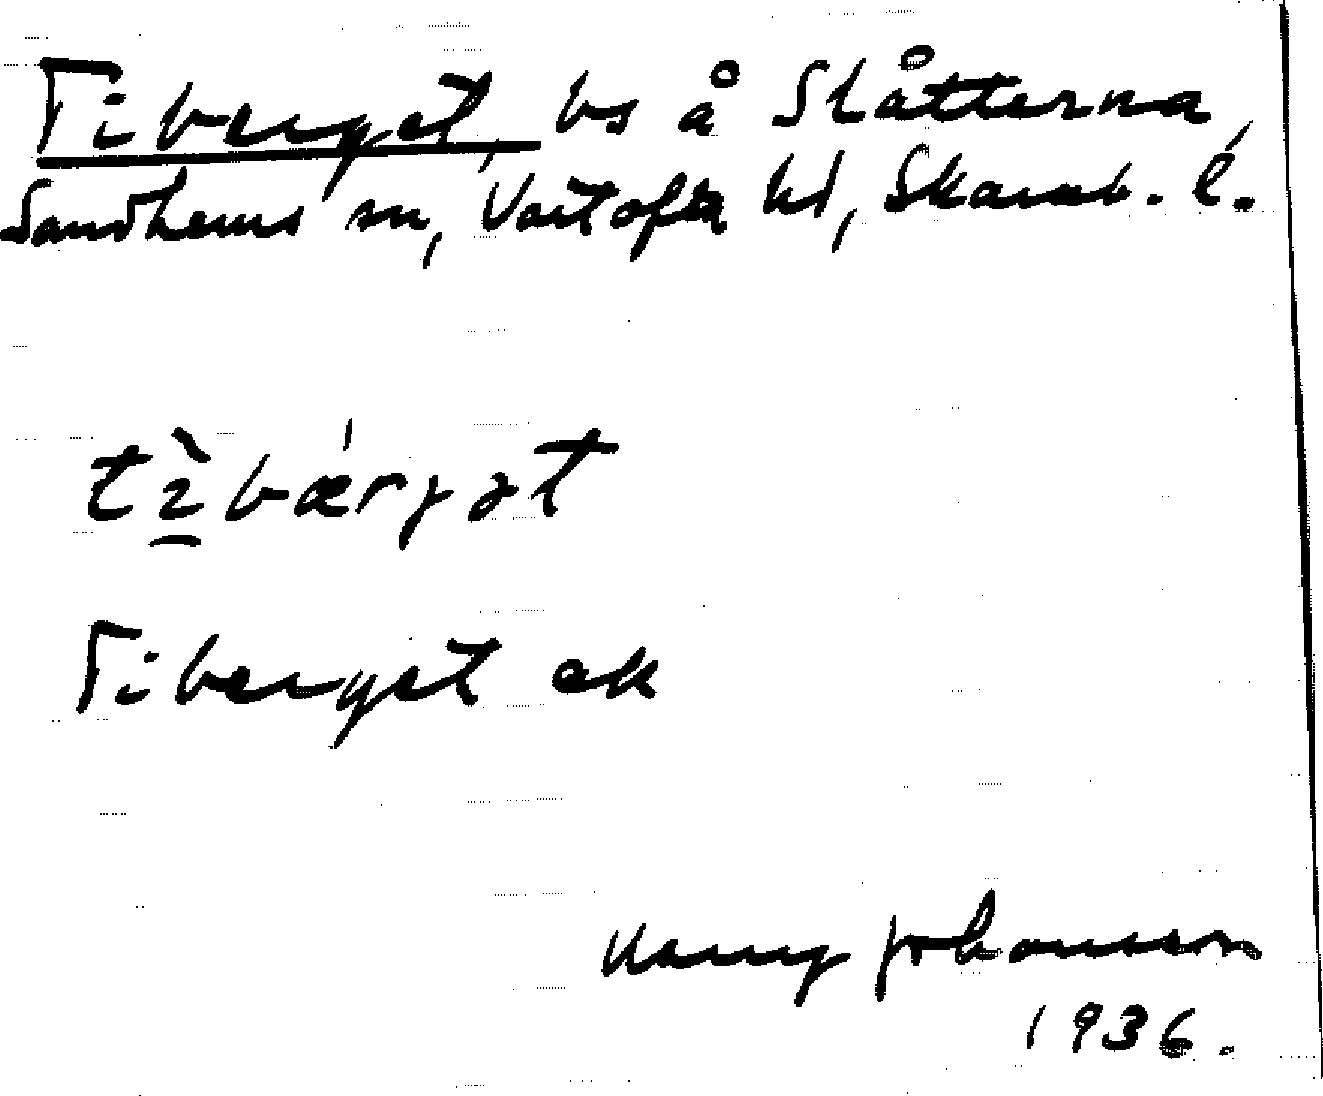 Tiberget, bs å Slåtterna,
Sandhems sn, Vartofta hd, Skarab. l.
tìbærgət
Tiberget ek
Johansson
1936.